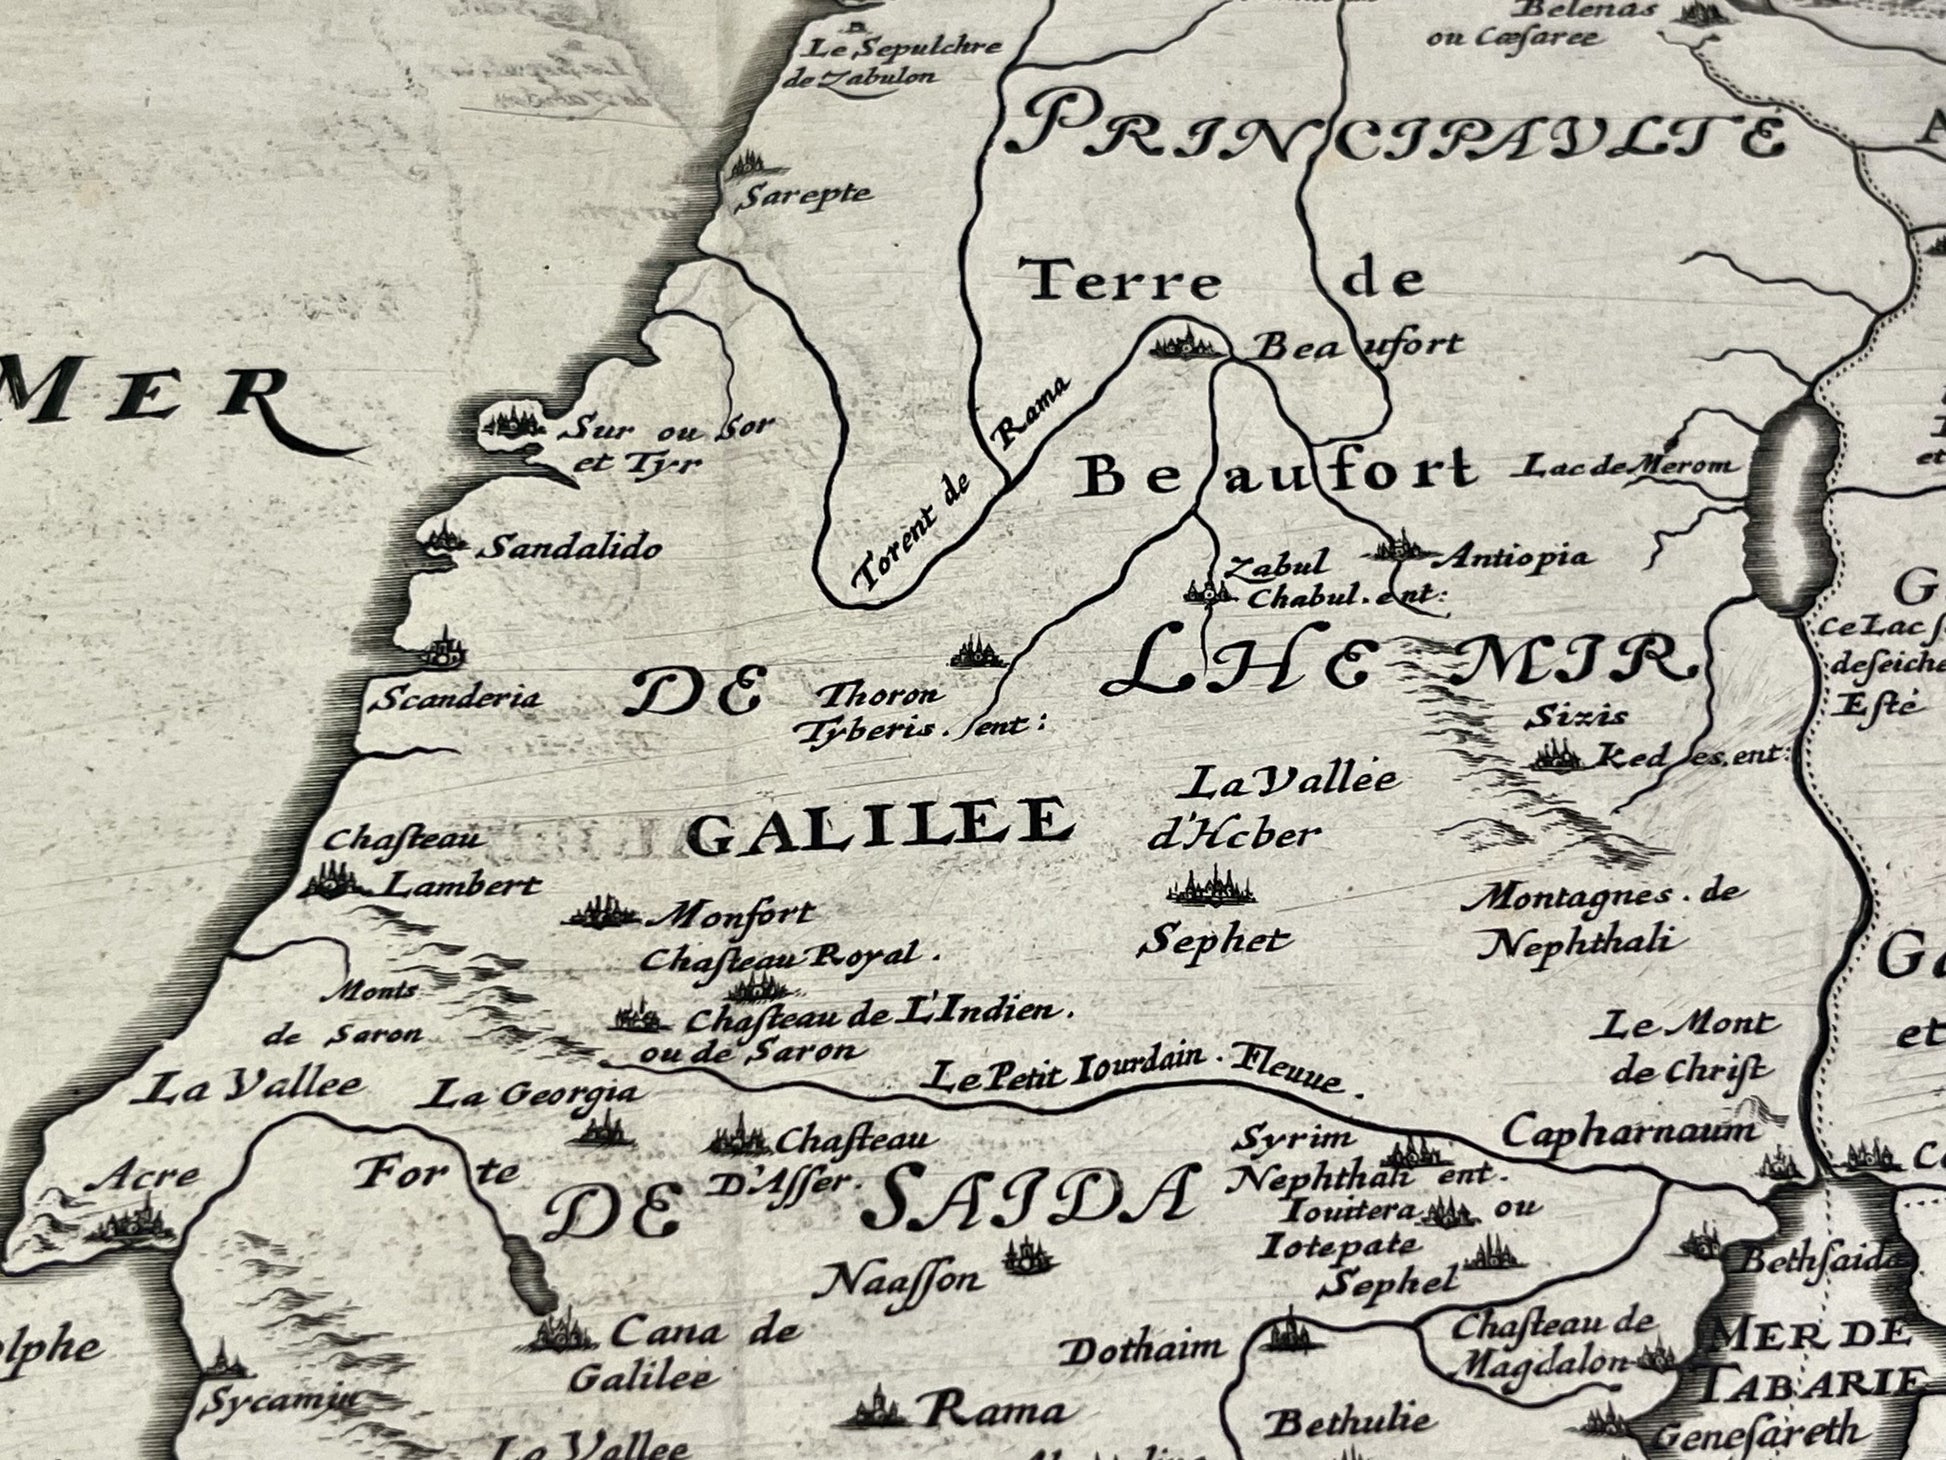 Belenas
ou Cæsaree
Le Sepulchre
de Zabulon
PRINCIPAVLTE
Sarepte
Terre de
Beaufort
MER
Sur ou Sor
et Tyr
Torent de Rama
Beaufort
Lac de Merom
Sandalido
Zabul
Chabul. ent:
Antiopia
Scanderia
DE
LHEMIR
Thoron
Tyberis. ent:
Ce Lac ſ
deſeiche
Eſté
Sizis
Kedes. ent:
La Vallée
d'Heber
GALILEE
Chaſteau
Lambert
Monfort
Chaſteau Royal.
Sephet
Montagnes. de
Nephthali
Monts
de Saron
Chaſteau de L'Indien.
ou de Saron
Le Mont
de Chriſt
Le Petit Iourdain. Fleuue.
La Vallee
La Georgia
Chaſteau
D'Aſſer.
Syrim
Nephthali ent.
Capharnaum
Acre
Forte
DE SAIDA
Iouitera ou
Iotepate
Sephel
Bethſaida
Naaſſon
Cana de
Galilee
Dothaim
Chaſteau de
Magdalon
MER DE
TABARIE
Sycamin
Rama
Bethulie
Geneſareth
La Vallee